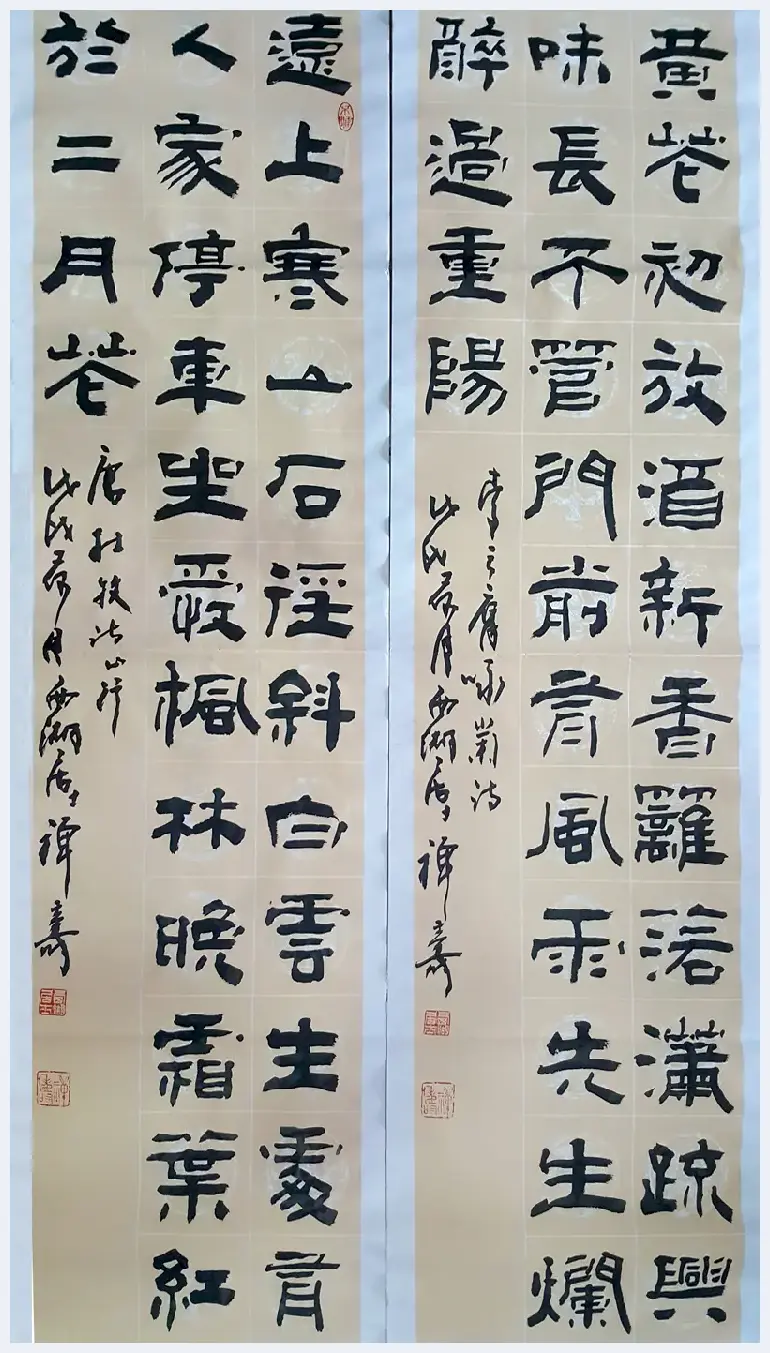 黄花初放酒新香籬落瀟疏興
味長不管門前有風雨先生爛
醉過重陽
李之膺咏菊诗
戊戌荷月西湖居士禅壽
遠上寒山石徑斜白雲生處有
人家停車坐愛楓林晚霜葉紅
於二月花
唐杜牧诗山行
戊戌荷月西湖居士禅壽